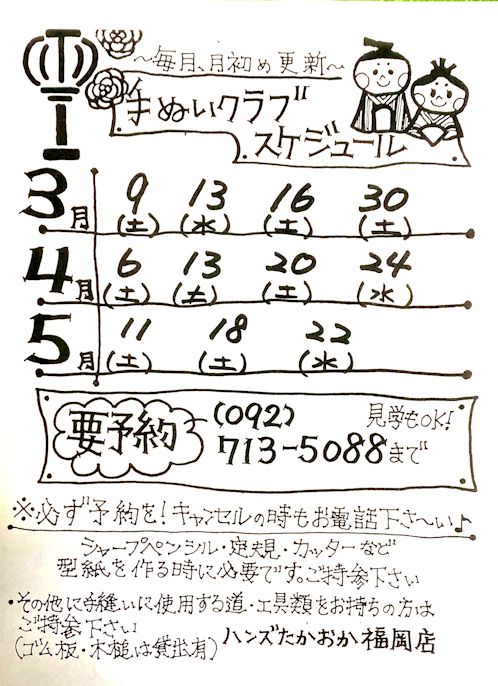 ～毎月、月初め更新～
手ぬいクラブ
スケジュール
3月 9(土) 13(水) 16(土) 30(土)
4月 6(土) 13(土) 20(土) 24(水)
5月 11(土) 18(土) 22(水)
要予約 (092) 見学もOK!
713-5088まで
※必ず予約を!キャンセルの時もお電話下さ～い♪
シャープペンシル・定規・カッターなど
型紙を作る時に必要です。ご持参下さい
・その他に手縫いに使用する道・工具類をお持ちの方は
ご持参下さい
(ゴム板・木槌は貸出有) ハンズたかおか福岡店